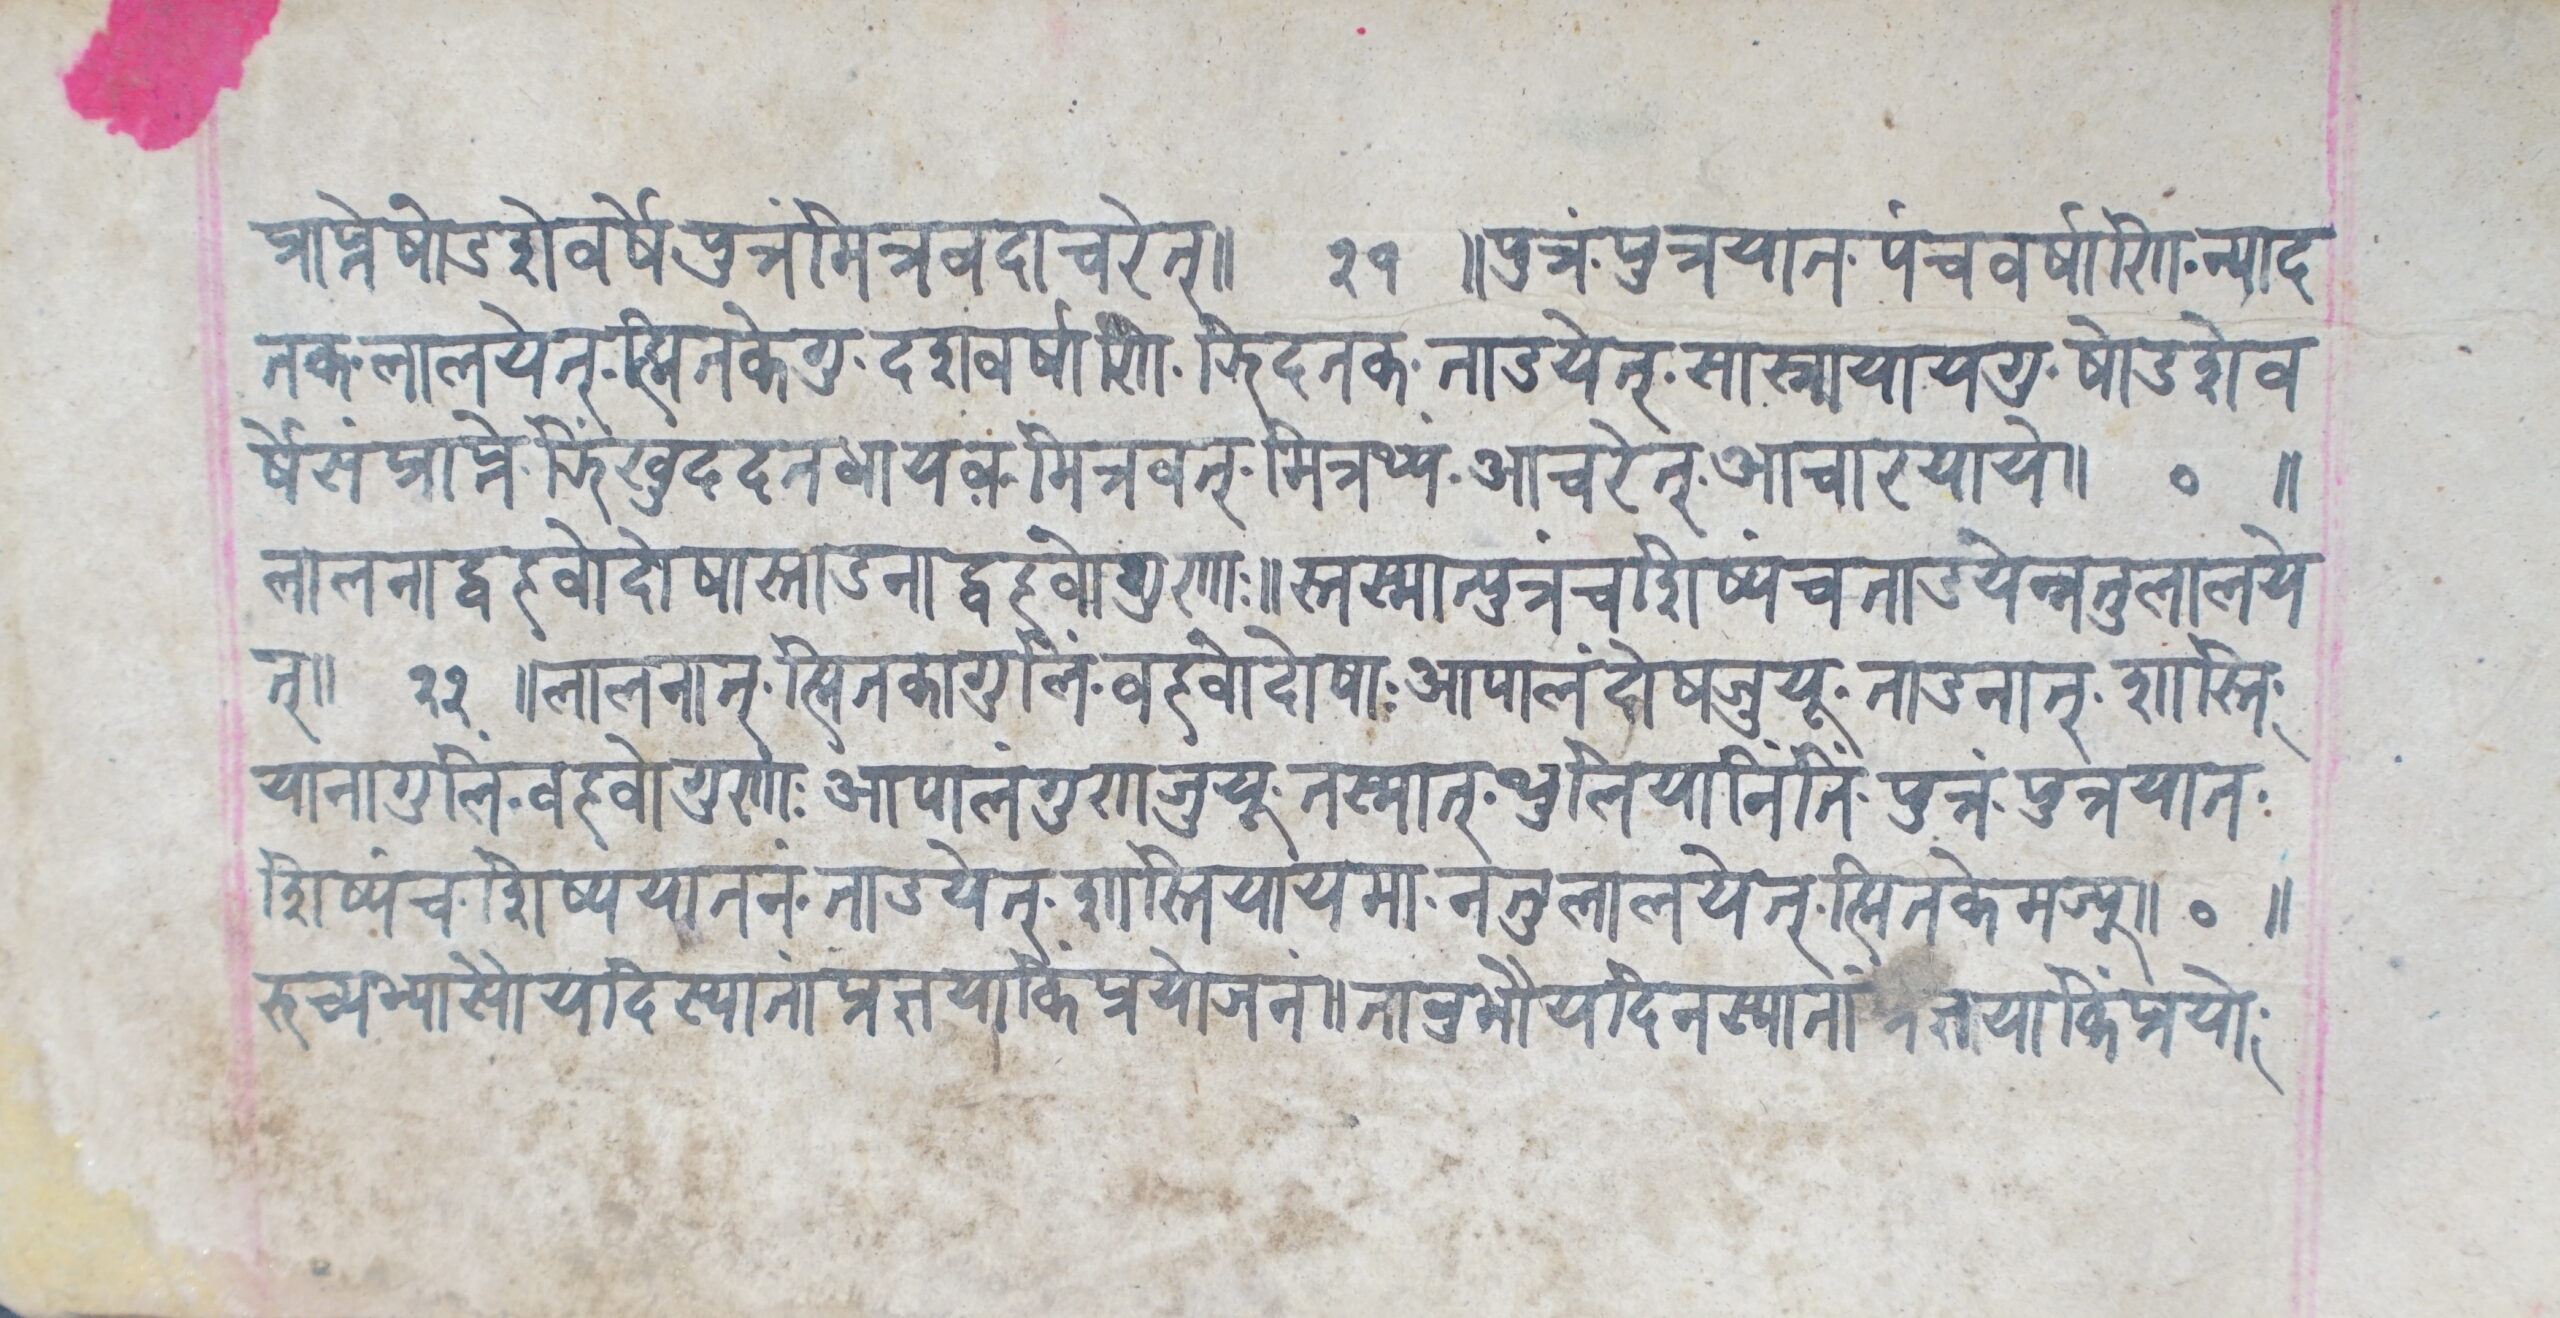 प्राप्तेषोडशेवर्षेपुत्रंमित्रवदाचरेत्॥ २१ ॥पुत्रं·पुत्रयात·पंचवर्षाणि·न्याद
तक·लालयेत्·ह्मितकेगु·दशवर्षाणि·झिदतक·ताडयेत्·सास्नायायगु·षोडशेव
र्षेसंप्राप्ते·झिंखुददतधायव·मित्रवत्·मित्रथ्यं·आचरेत्·आचारयाये॥ ० ॥
लालनाद्वहवोदोषास्ताडनाद्वहवोगुणाः॥स्तस्मात्पुत्रंचशिष्यंचताडयेन्नतुलालये
त्॥ २२ ॥लालनात्·ह्मितकागुलिं·वहवोदोषाः आपालंदोषजुयू·ताडनात्·शास्ति
यानागुलिं·वहवोगुणाः आपालंगुणजुयू·तस्मात्·थुलियानिंतिं·पुत्रं·पुत्रयात·
शिष्यंच·शिष्ययातनं·ताडयेत्·शास्तियायमा·नतुलालयेत्·ह्मितकेमज्यू॥ ० ॥
रुच्यभ्यासौयदिस्यातांप्रज्ञयाकिंप्रयोजनं॥तावुभौयदिनस्यातां ज्ञयाकिंप्रयो